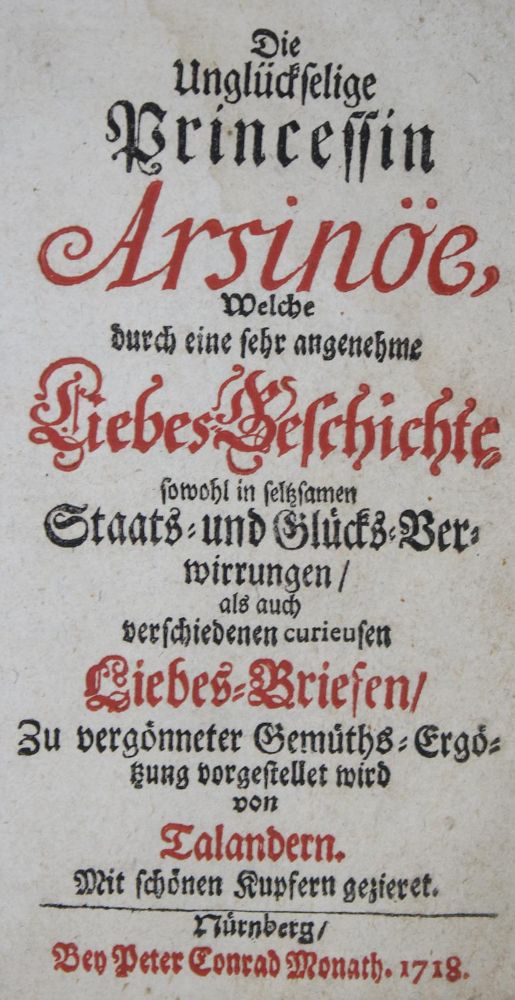 Die
Unglückselige
Princessin
Arsinöe,
Welche
durch eine sehr angenehme
Liebes-Geschichte,
sowohl in seltzsamen
Staats- und Glücks-Ver-
wirrungen /
als auch
verschiedenen curieusen
Liebes-Briefen /
Zu vergönneter Gemüths-Ergö-
tzung vorgestellet wird
von
Talandern.
Mit schönen Kupfern gezieret.
Nürnberg /
Bey Peter Conrad Monath. 1718.